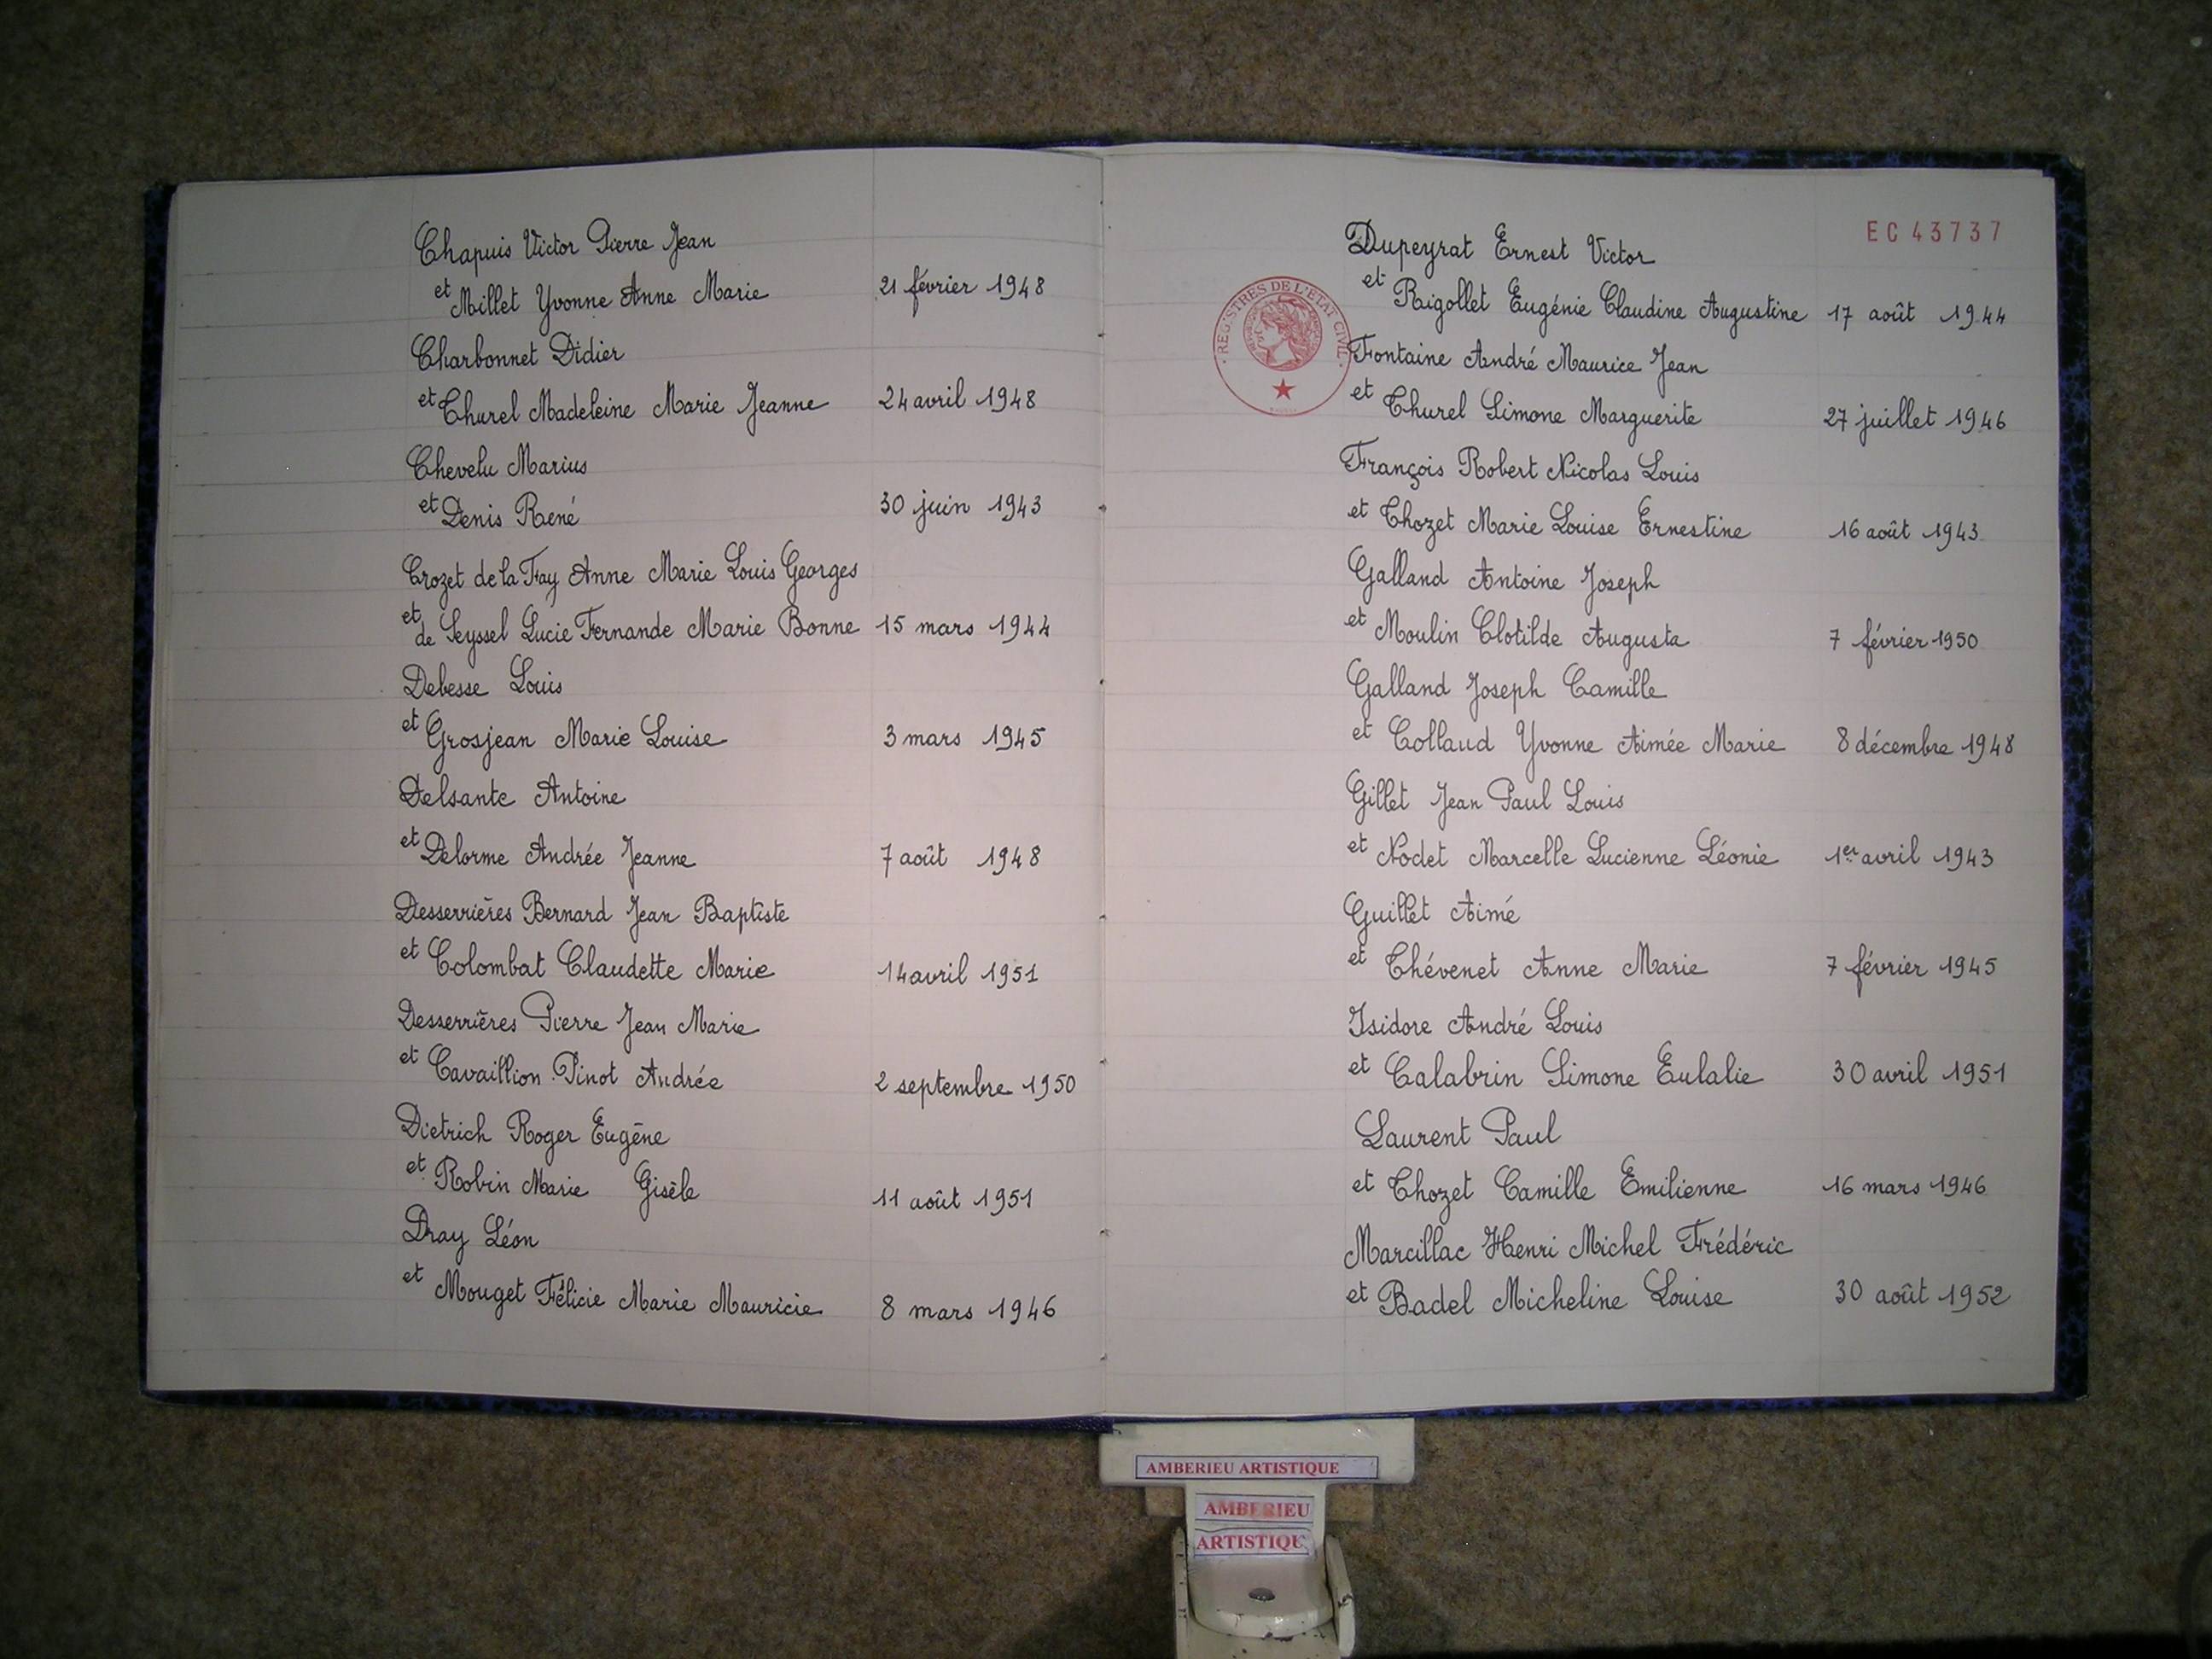 Chapuis Victor Pierre Jean
et Millet Yvonne Anne Marie 21 février 1948
Charbonnet Didier
et Churel Madeleine Marie Jeanne 24 avril 1948
Chevelu Marius
et Denis René 30 juin 1943
Crozet de la Fay Anne Marie Louis Georges
et de Seyssel Lucie Fernande Marie Bonne 15 mars 1944
Debesse Louis
et Grosjean Marie Louise 3 mars 1945
Delsante Antoine
et Delorme Andrée Jeanne 7 août 1948
Desserrières Bernard Jean Baptiste
et Colombat Claudette Marie 14 avril 1951
Desserrières Pierre Jean Marie
et Cavaillion Pinot Andrée 2 septembre 1950
Dietrich Roger Eugène
et Robin Marie Gisèle 11 août 1951
Dray Léon
et Mouget Félicie Marie Mauricie 8 mars 1946
EC 43737
REGISTRES DE L'ETAT CIVIL
Dupeyrat Ernest Victor
et Rigollet Eugénie Claudine Augustine 17 août 1944
Fontaine André Maurice Jean
et Churel Simone Marguerite 27 juillet 1946
François Robert Nicolas Louis
et Chozet Marie Louise Ernestine 16 août 1943
Galland Antoine Joseph
et Moulin Clotilde Augusta 7 février 1950
Galland Joseph Camille
et Collaud Yvonne Aimée Marie 8 décembre 1948
Gillet Jean Paul Louis
et Nodet Marcelle Lucienne Léonie 1er avril 1943
Guillet Aimé
et Chévenet Anne Marie 7 février 1945
Isidore André Louis
et Calabrin Simone Eulalie 30 avril 1951
Laurent Paul
et Chozet Camille Emilienne 16 mars 1946
Marcillac Henri Michel Frédéric
et Badel Micheline Louise 30 août 1952
AMBERIEU ARTISTIQUE
AMBERIEU
ARTISTIQU